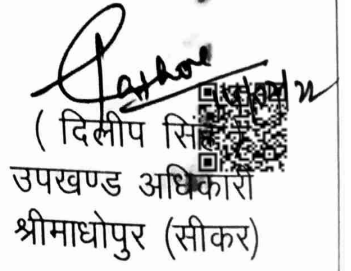 ( दिलीप सिंह
उपखण्ड अधिकारी
श्रीमाधोपुर (सीकर)